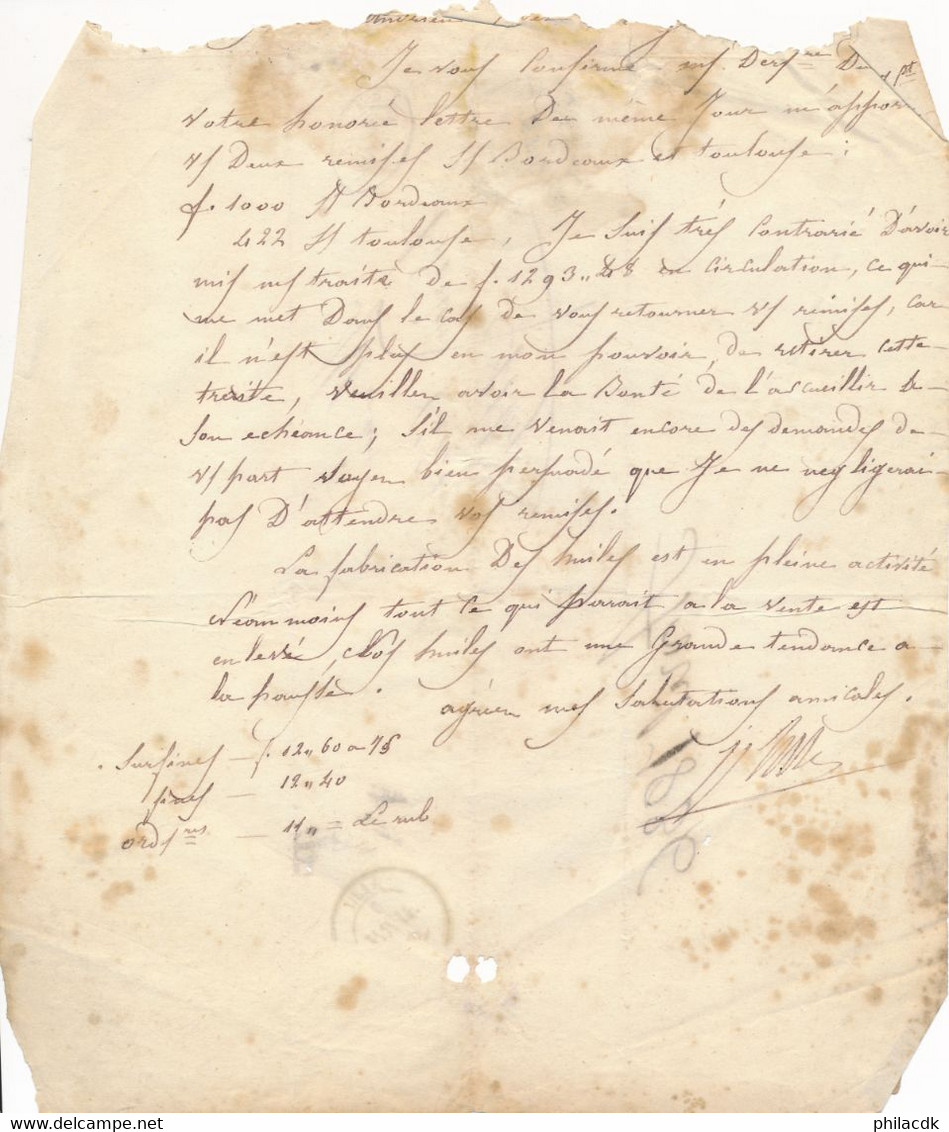 Je vous Confirme ms. Dersre Du
votre honorée lettre Du même Jour m'appor
vs Deux remises S/ Bordeaux et toulouse :
f. 1000 S/ Bordeaux
422 S/ toulouse, Je suis très Contrarié D'avoir
mis ms traite De f. 1293,,48 en circulation, ce qui
me met Dans le cas de vous retourner vs remises, car
il n'est plus en mon pouvoir, de retirer cette
traite, veuillez avoir la Bonté de l'accueillir a
son echéance; s'il me venait encore des demandes de
vs part soyez bien persuadé que Je ne negligerai
pas D'attendre vos remises.
La fabrication Des huiles est en pleine activité
Néammoins tout ce qui parait a la vente est
enlevé, Nos huiles ont une Grande tendance a
la hausse.
agréez mes Salutations amicales.
Surfines — f. 12,, 60 a 75
fines — 12,,40
ordres — 11,, = Le rub
philacdk